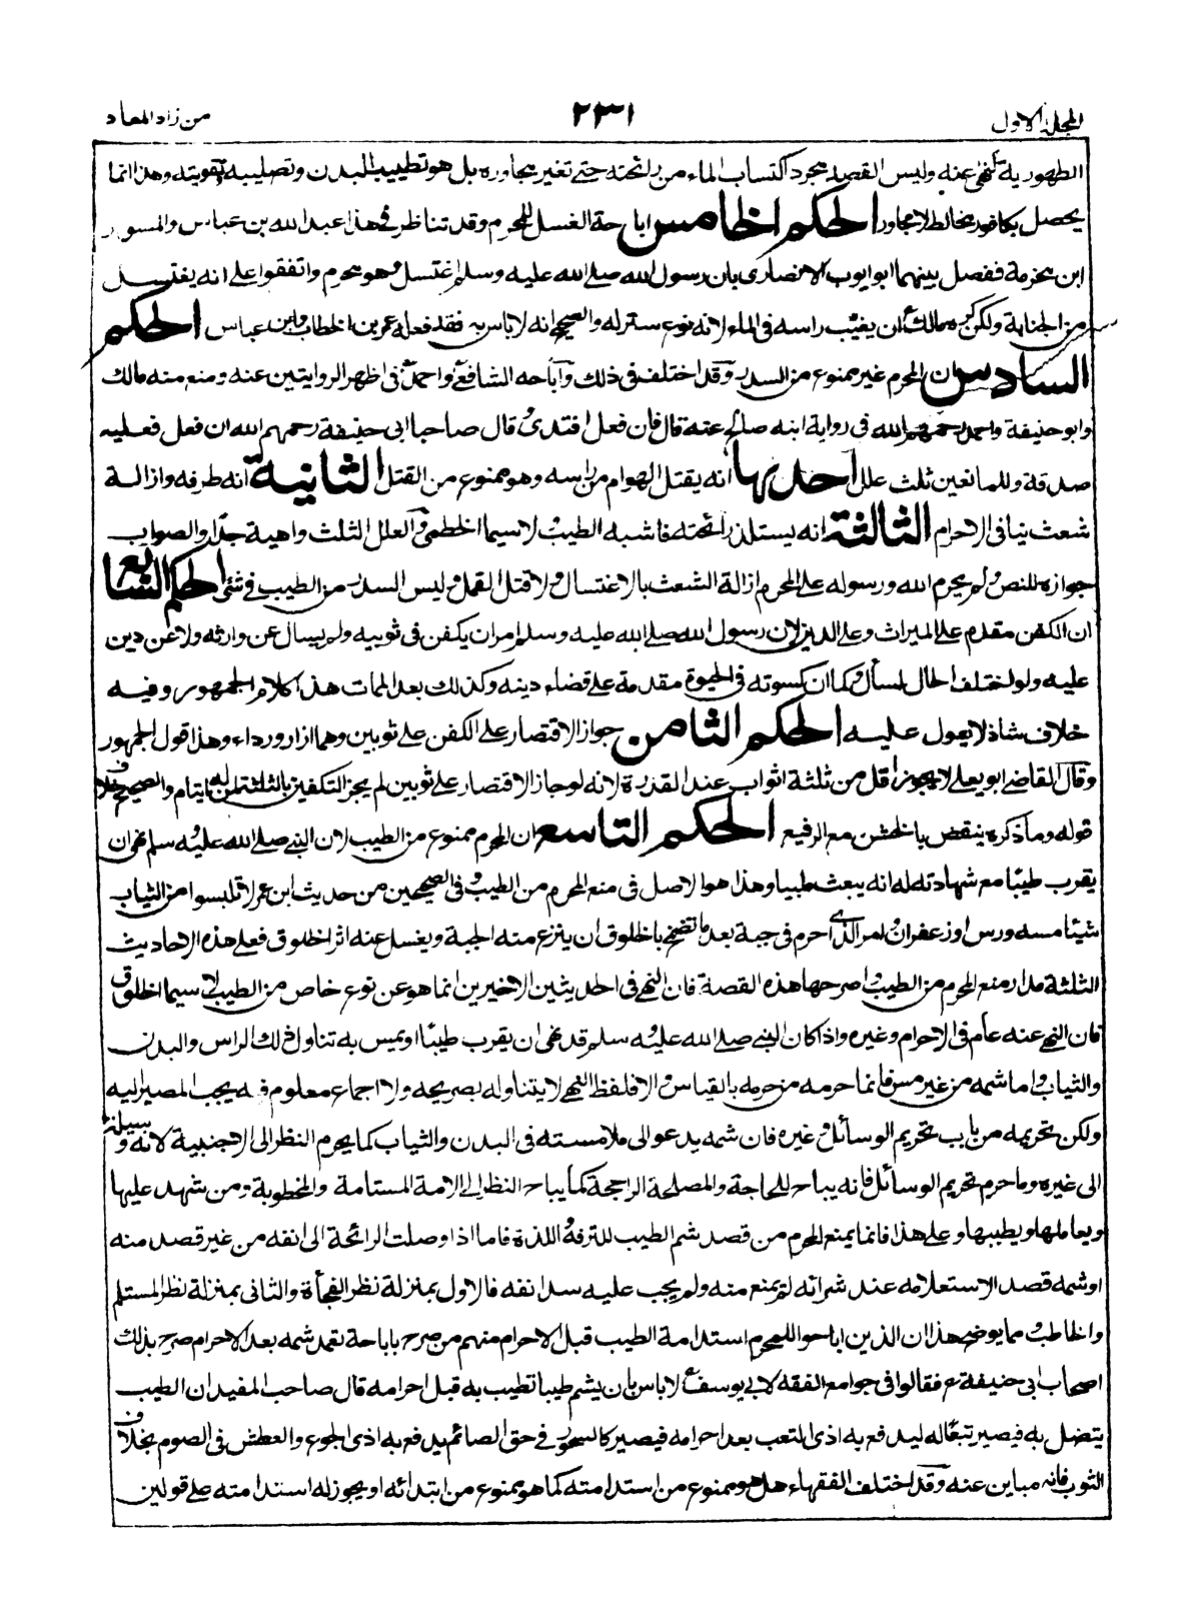 المجلد الاول
٢٣١
من زاد المعاد
الطهورية تنفى عنه وليس القصد مجرد اكتساب الماء من رائحته حتى تغير مجاوره بل هو تطييب البدن وتصليبه وتقويته وهذا انما
يحصل بكافور مخالط لا مجاور الحكم الخامس اباحة الغسل للمحرم وقد تناظر في هذا عبد الله بن عباس والمسور
ابن مخرمة ففصل بينهما ابو ايوب الانصارى بان رسول الله صلى الله عليه وسلم اغتسل وهو محرم واتفقوا على انه يغتسل
من الجنابة ولكن كره مالك ان يغيب راسه فى الماء لانه نوع ستر له والصحيح انه لا باس به فقد فعله عمر بن الخطاب وابن عباس الحكم
السادس ان المحرم غير ممنوع من السدر وقد اختلف فى ذلك واباحه الشافعى واحمد فى اظهر الروايتين عنه ومنع منه مالك
وابو حنيفة واحمد رحمهم الله فى رواية ابنه صالح عنه قال فان فعل افتدى وقال صاحبا ابى حنيفة رحمهم الله ان فعل فعليه
صدقة وللمانعين ثلث علل احدىها انه يقتل الهوام من راسه وهو ممنوع من القتل الثانية انه طرفه وازالة
شعث ينافى الاحرام الثالثة انه يستلذ رائحته فاشبه الطيب لا سيما الخطمى والعلل الثلث واهية جدا والصواب
جوازه للنص ولم يحرم الله ورسوله على المحرم ازالة الشعث بالاغتسال ولا قتل القمل وليس السدر من الطيب فى شئ الحكم السابع
ان الكفن مقدم على الميراث وعلى الدين لان رسول الله صلى الله عليه وسلم امر ان يكفن فى ثوبيه ولم يسال عن وارثه ولا عن دين
عليه ولو اختلف الحال لسأل وكما ان كسوته فى الحيوة مقدمة على قضاء دينه وكذلك بعد الممات هذا كلام الجمهور وفيه
خلاف شاذ لا يعول عليه الحكم الثامن جواز الاقتصار على الكفن على ثوبين وهما ازار ورداء وهذا قول الجمهور
وقال القاضى ابو يعلى لا يجوز اقل من ثلثة اثواب عند القدرة لانه لو جاز الاقتصار على ثوبين لم يجز التكفين بالثلثة لمن له يتام والصحيح خلاف
قوله وما ذكره ينقض بالخشن مع الرفيع الحكم التاسع ان المحرم ممنوع من الطيب لان النبى صلى الله عليه وسلم نهى ان
يقرب طيبا مع شهادته له انه يبعث ملبيا وهذا هو الاصل فى منع المحرم من الطيب وفى الصحيحين من حديث ابن عمر لا تلبسوا من الثياب
شيئا مسه ورس او زعفران وامر الذى احرم فى جبة بعد ما تضمخ بالخلوق ان ينزع منه الجبة ويغسل عنه اثر الخلوق فعلى هذه الاحاديث
الثلثة مدار منع المحرم من الطيب واصرحها هذه القصة فان النهى فى الحديثين الاخيرين انما هو عن نوع خاص من الطيب لا سيما الخلوق
فان النهى عنه عام فى الاحرام وغيره واذا كان النبى صلى الله عليه وسلم قد نهى ان يقرب طيبا او يمس به تناول ذلك الراس والبدن
والثياب واما شمه من غير مس فانما حرمه من حرمه بالقياس والا فلفظ النهى لا يتناوله بصريحه ولا اجماع معلوم فيه يجب المصير اليه
ولكن تحريمه من باب تحريم الوسائل وغيره فان شمه يدعو الى ملامسته فى البدن والثياب كما يحرم النظر الى الاجنبية لانه وسيلة
الى غيره وما حرم تحريم الوسائل فانه يباح للحاجة والمصلحة الراجحة كما يباح النظر الى الامة المستامة والمخطوبة ومن شهد عليها
ويعاملها ويطببها وعلى هذا فانما يمنع المحرم من قصد شم الطيب للترفه واللذة فاما اذا وصلت الرائحة الى انفه من غير قصد منه
او شمه قصد الاستعلامه عند شرائه لم يمنع منه ولم يجب عليه سد انفه فالاول بمنزلة نظر الفجأة والثانى بمنزلة نظر المستلم
والخاطب ومما يوضح هذا ان الذين اباحوا للمحرم استدامة الطيب قبل الاحرام منهم من صرح باباحة تعمد شمه بعد الاحرام صرح بذلك
اصحاب ابى حنيفة فقالوا فى جوامع الفقه لابى يوسف لا باس بان يشم طيبا تطيب به قبل احرامه قال صاحب المفيد ان الطيب
يتصل به فيصير تبعا له ليدفع به اذى التعب بعد احرامه فيصير كالسحور فى حق الصائم يدفع به اذى الجوع والعطش فى الصوم بخلاف
الثوب فانه مباين عنه وقد اختلف الفقهاء هل هو ممنوع من استدامته كما هو ممنوع من ابتدائه او يجوز له استدامته على قولين